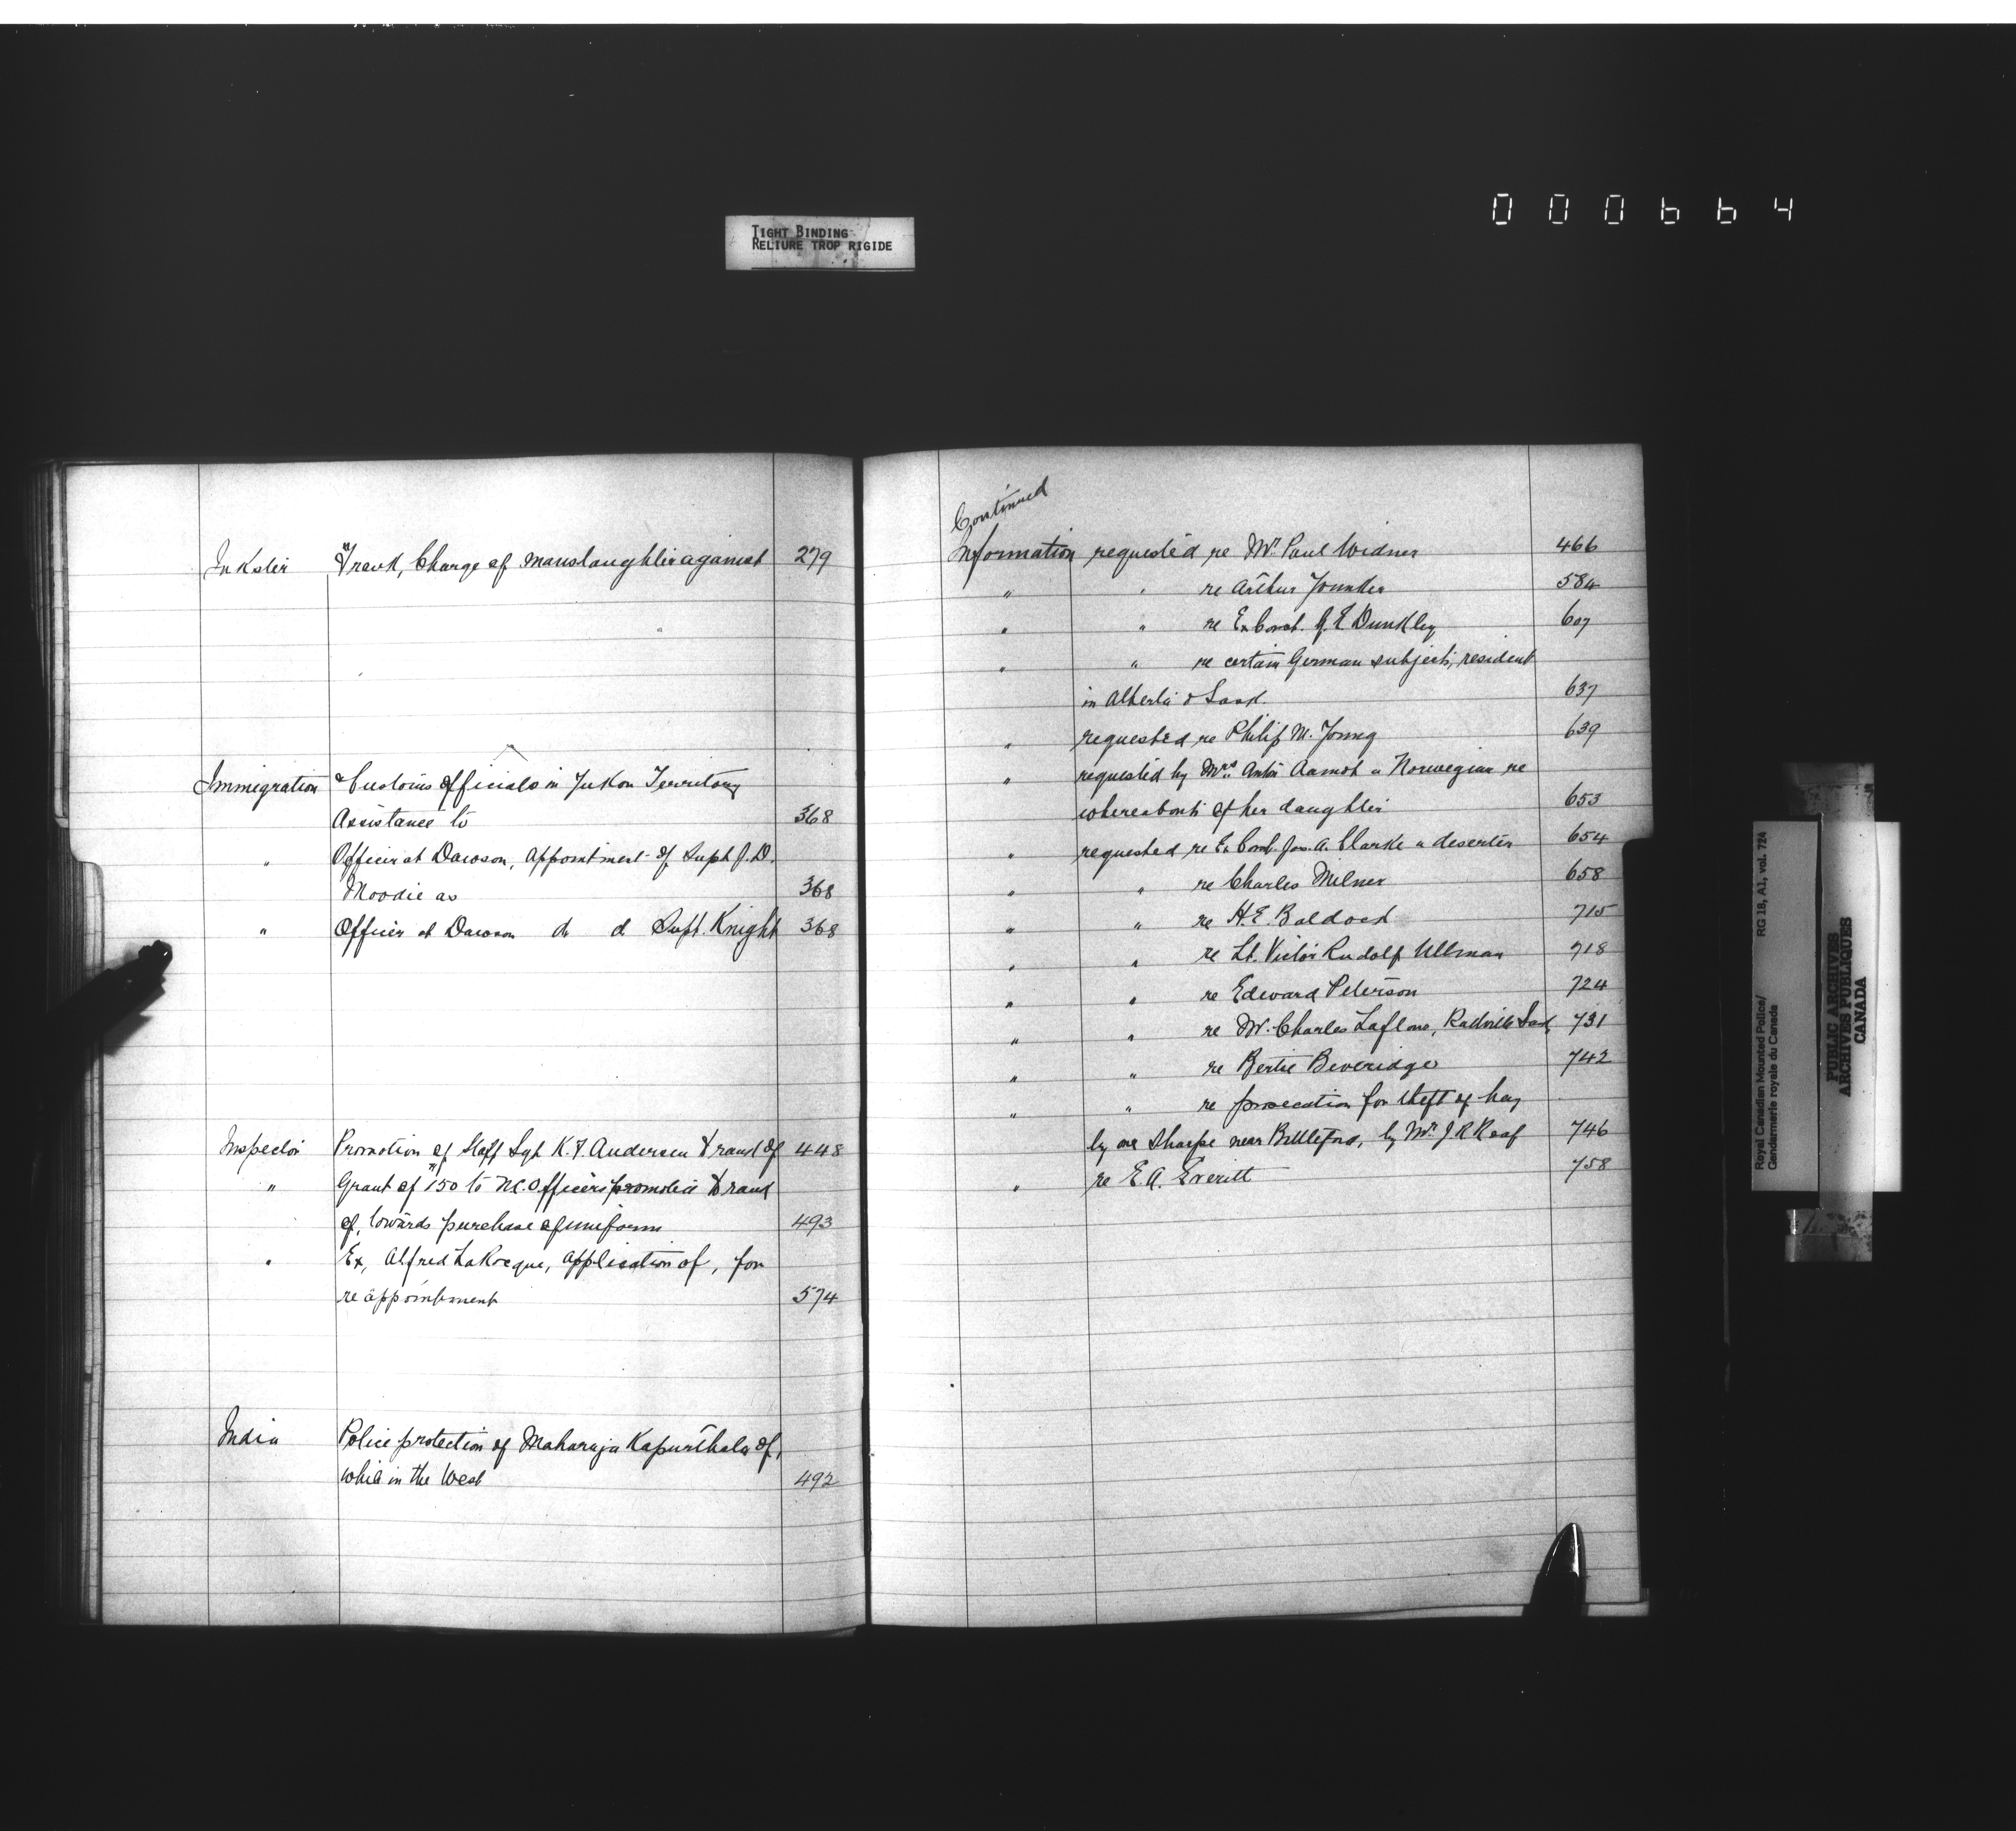 000664
TIGHT BINDING
RELIURE TROP RIGIDE
Inkster Frank, Charge of manslaughter against 279
Immigration & Customs Officials in Yukon Territory
Assistance to 368
" Officer at Dawson, appointment of Supt J. D.
Moodie as 368
" Officer at Dawson do d Supt. Knight 368
Inspector Promotion of Staff Sgt K. F. Anderson to rank of 448
" Grant of $150 to N.C. Officers promoted to rank
of, towards purchase of uniform 493
" Ex, Alfred LaRocque, application of, for
re appointment 574
India Police protection of Maharaja Kapurthala of,
while in the West 492
Continued
Information requested re Mr. Paul Widner 466
" " re Arthur Younker 584
" " re Ex Const. G. E Dunkley 607
" " re certain German subjects, resident
in Alberta & Sask. 637
" requested re Philip M. Young 639
" requested by Mrs. Anton Aamoth a Norwegian re
whereabouts of her daughter 653
" requested re Ex Const. Jas. A. Clarke a deserter 654
" " re Charles Milner 658
" " re H. E. Baldock 715
" " re Lt. Victor Rudolf Ullman 718
" " re Edward Peterson 724
" " re Mr. Charles Laflone, Radville Sask, 731
" " re Bertie Beveridge 742
" " re prosecution for theft of hay
by one Sharpe near Battleford, by Mr. J R Reaf 746
" re E. A. Everitt 758
Royal Canadian Mounted Police/
Gendarmerie royale du Canada
RG 18, A1, vol. 724
PUBLIC ARCHIVES
ARCHIVES PUBLIQUES
CANADA